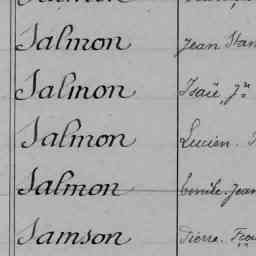 Salmon Jean Stan
Salmon Isaïe Jn
Salmon Lucien.
Salmon Emile. Jean
Samson Pierre. Fçois